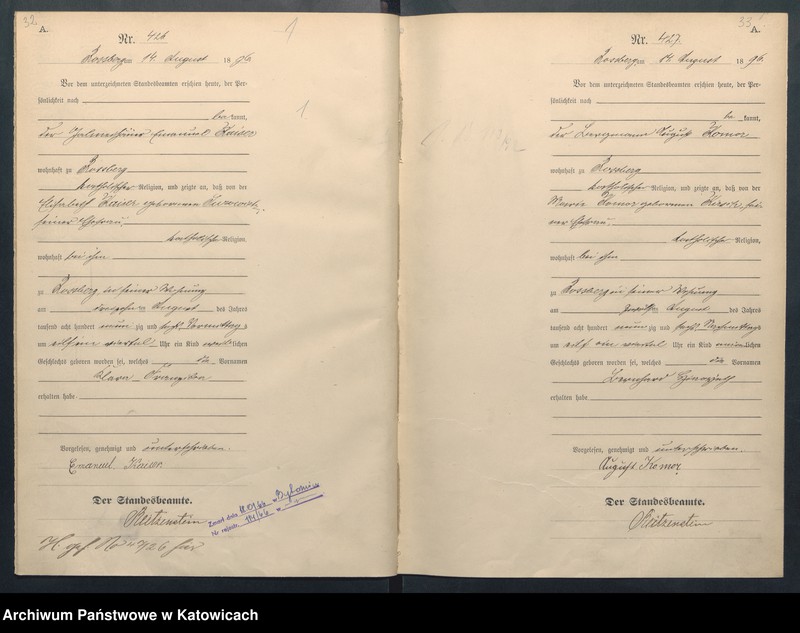 32
A.
Nr. 426
1
Rossberg am 14. August 1896.
Vor dem unterzeichneten Standesbeamten erschien heute, der Per-
sönlichkeit nach
be kannt,
1
der Emanuel Kaiser
wohnhaft zu Rossberg
katholischer Religion, und zeigte an, daß von der
Elisabeth Kaiser geborenen
seiner Ehefrau
katholischer Religion,
wohnhaft bei ihm
zu Rossberg in seiner Wohnung
am August des Jahres
tausend acht hundert neun zig und sechs Vormittags
um elf ein viertel Uhr ein Kind weiblichen
Geschlechts geboren worden sei, welches die Vornamen
Klara
erhalten habe
Vorgelesen, genehmigt und unterschrieben.
Emanuel Kaiser
Der Standesbeamte.
Reitzenstein
Zmarł dnia
Nr rejestr. 114/66
33
A.
Nr. 427.
Rossberg am 14. August 1896.
Vor dem unterzeichneten Standesbeamten erschien heute, der Per-
sönlichkeit nach
be kannt,
der Bergmann August Komor
wohnhaft zu Rossberg
katholischer Religion, und zeigte an, daß von der
Marie Komor geborenen sei-
ner Ehefrau
katholischer Religion,
wohnhaft bei ihm
zu Rossberg in seiner Wohnung
am zwölften August des Jahres
tausend acht hundert neun zig und sechs Nachmittags
um elf ein viertel Uhr ein Kind männlichen
Geschlechts geboren worden sei, welches die Vornamen
Bernhard
erhalten habe
Vorgelesen, genehmigt und unterschrieben.
August Komor
Der Standesbeamte.
Reitzenstein
Archiwum Państwowe w Katowicach